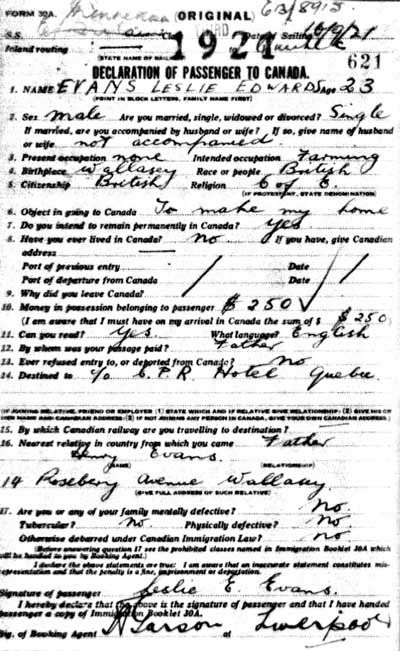 FORM 30A. (ORIGINAL) 63/8915
Minnedosa
S.S. Date of Sailing 10/9/21
Inland routing 1921 to
(STATE NAME OF RAILWAY) 621
DECLARATION OF PASSENGER TO CANADA.
1. NAME EVANS LESLIE EDWARD Age 23
(PRINT IN BLOCK LETTERS, FAMILY NAME FIRST)
2. Sex male Are you married, single, widowed or divorced? Single
If married, are you accompanied by husband or wife? If so, give name of husband
or wife not accompanied
3. Present occupation none Intended occupation Farming
4. Birthplace Wallasey Race or people British
5. Citizenship British Religion C of E.
(IF PROTESTANT, STATE DENOMINATION)
6. Object in going to Canada To make my home
7. Do you intend to remain permanently in Canada? yes
8. Have you ever lived in Canada? no If you have, give Canadian
address
Port of previous entry Date
Port of departure from Canada Date
9. Why did you leave Canada?
10. Money in possession belonging to passenger $250
(I am aware that I must have on my arrival in Canada the sum of $ $250)
11. Can you read? Yes. What language? English
12. By whom was your passage paid? Father
13. Ever refused entry to, or deported from Canada? No
14. Destined to c/o C.P.R. Hotel Quebec.
(IF JOINING RELATIVE, FRIEND OR EMPLOYER (1) STATE WHICH AND IF RELATIVE GIVE RELATIONSHIP: (2) GIVE HIS OR
HER NAME AND CANADIAN ADDRESS: (3) IF NOT JOINING ANY PERSON IN CANADA, GIVE YOUR OWN CANADIAN ADDRESS)
15. By which Canadian railway are you travelling to destination?
16. Nearest relative in country from which you came Father
Henry Evans.
(NAME) (RELATIONSHIP)
14 Rosebery Avenue Wallasey
(GIVE FULL ADDRESS OF SUCH RELATIVE)
17. Are you or any of your family mentally defective? No.
Tubercular? No. Physically defective? No.
Otherwise debarred under Canadian Immigration Law? no
(Before answering question 17 see the prohibited classes named in Immigration Booklet 30A which
will be handed to you by Booking Agent.)
I declare the above statements are true: I am aware that an inaccurate statement constitutes mis-
representation and that the penalty is a fine, imprisonment or deportation.
Signature of passenger Leslie E. Evans.
I hereby declare that the above is the signature of passenger and that I have handed
passenger a copy of Immigration Booklet 30A.
Sig. of Booking Agent at Liverpool